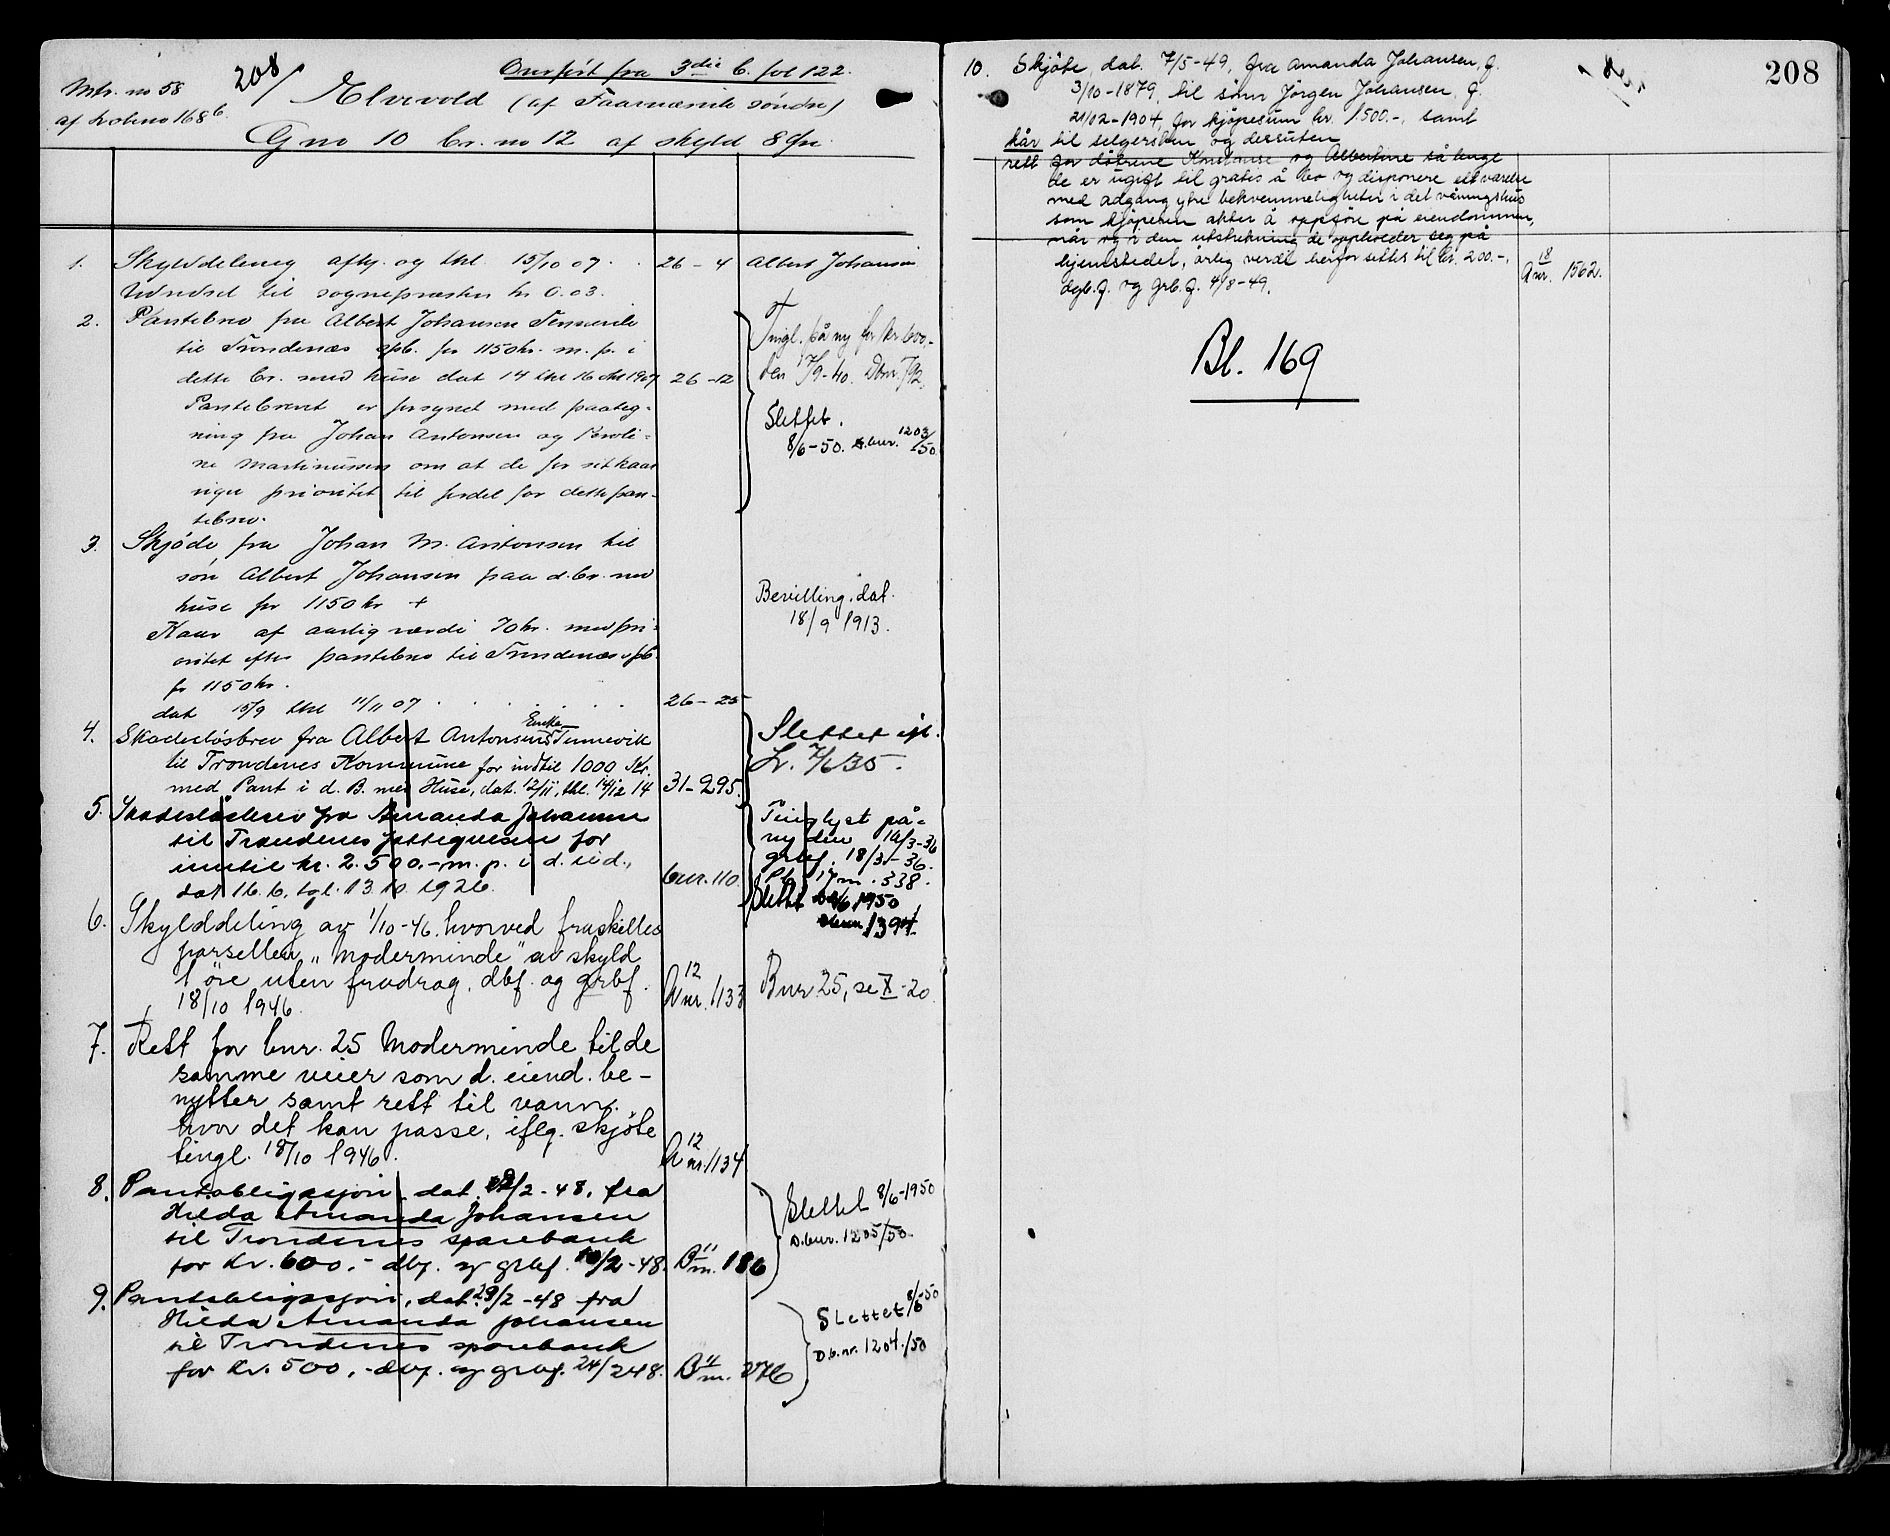 Mtr. no 58
af Lobeno 168b
208/
Overført fra 3die b. fol 122.
Elvevold (af Faarnæsvik søndre)
Gno 10 br. no 12 af skyld 8 Øre
1. Skylddeling afhj. og thl 15/10 07. 26 - 4 Albert Johansen
Udvidset til sognepræsten kr 0.03.
2. Pantebrev fra Albert Johansen
til Trondenæs spb. for 1150 kr. m. p. i
dette br. med huse dat 14 thl 16 okt 1907 26 - 12
Pantebrevet er forsynet med paateg-
ning fra Johan Antonsen og Beroli-
ne Martinussen om at de for sit kaar
viger prioritet til fordel for dette pan-
tebrev.
Tingl. på ny for kr 600,-
den 17/9-40. Dbnr. 792.
Slettet.
8/6-50. D.bnr. 1203/50.
3. Skjøde fra Johan M. Antonsen til
søn Albert Johansen paa d. br. med
huse for 1150 kr +
Kaar af aarlig værdi 70 kr. med pri-
oritet efter pantebrev til Trondenæs spb.
for 1150 kr.
dat 15/9 thl 11/11 07. 26 - 25
Bevilling. dat.
18/9 1913.
4. Skadesløsbrev fra Albert Antonsens Enke Tennevik
til Trondenes Kommune for indtil 1000 Kr.
med Pant i d. B. med Huse, dat. 12/11, thl. 14/12 14 31-295.
Slettet ifl.
L. 7/6 35.
5. Skadesløsbrev fra Amanda Johansen
til Trondenes fattigvesen for
inntil kr. 2.500.- m. p. i d. eid.,
dat 16.6. tgl. 13.10. 1926. bnr. 110.
Tinglyst på-
ny den 16/3-36
grbf. 18/3-36.
Pb. 17 m. 338.
Slettet /6 1950
1394.
6. Skylddeling av 1/10-46. hvorved fraskilles
parsellen "Moderminde" av skyld
1 øre uten fradrag, dbf. og grbf.
18/10 1946. A 12 nr. 1133
Bnr 25, se X -20.
7. Rett for bnr. 25 Moderminde til de
samme veier som d. eiend. be-
nytter samt rett til vann.
hvor det kan passe, iflg. skjøte
tingl. 18/10 1946. A 12 nr. 1134
8. Pantobligasjon, dat. /2-48, fra
Hilda Amanda Johansen
til Trondenes sparebank
for Kr. 600.- dbf. og grbf. 10/2-48. B 11 nr. 186
Slettet 8/6-1950
D.bnr. 1205/50.
9. Pantobligasjon, dat. 23/2-48 fra
Hilda Amanda Johansen
til Trondenes sparebank
for Kr. 500.- dbf. og grbf. 24/2 48. B 11 nr. 276
Slettet 8/6-50
D.b.nr. 1204./50
208
10. Skjøte, dat. 7/5-49, fra Amanda Johansen, f.
3/10-1879, til sønn Jørgen Johansen, f.
21/02-1904, for kjøpesum kr. 1500.-, samt
kår til selgersken og dessuten
rett for døtrene Konstanse og Albertine så lenge
de er ugift til gratis å bo og disponere ett værelse
med adgang ytre bekvemmeligheter i det våningshus
som kjøperen akter å oppføre på eiendommen,
når og i den utstrekning de oppholder seg på
hjemstedet, årlig verdi herfor settes til kr. 200.-.
dgb.f. og grb.f. 4/8-49. A 18 nr. 1502.
Bl. 169